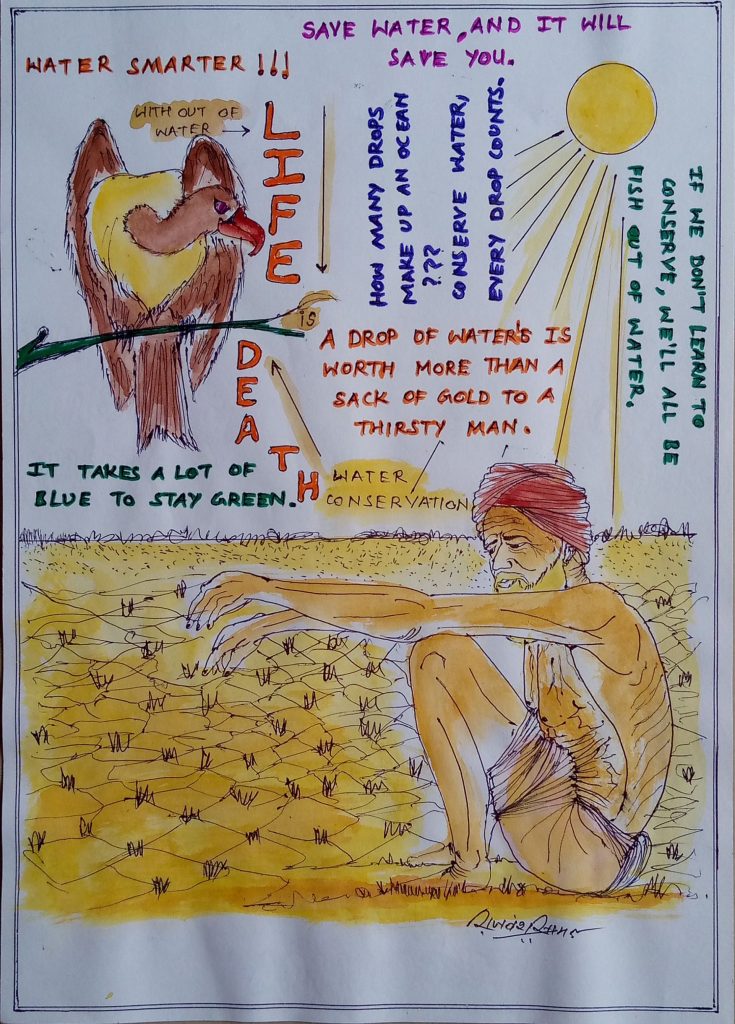 SAVE WATER, AND IT WILL
SAVE YOU.
WATER SMARTER !!!
WITH OUT OF
WATER →
LIFE
is
DEATH
HOW MANY DROPS
MAKE UP AN OCEAN
???
CONSERVE WATER,
EVERY DROP COUNTS.
IF WE DON'T LEARN TO
CONSERVE, WE'LL ALL BE
FISH OUT OF WATER.
A DROP OF WATER'S IS
WORTH MORE THAN A
SACK OF GOLD TO A
THIRSTY MAN.
IT TAKES A LOT OF
BLUE TO STAY GREEN.
WATER
CONSERVATION